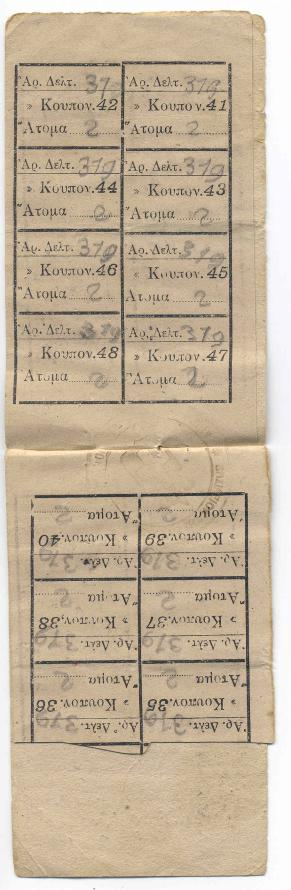 Ἀρ. Δελτ. 37 Ἀρ. Δελτ. 379
» Κουπον. 42 » Κουπον. 41
Ἄτομα 2 Ἄτομα 2
Ἀρ. Δελτ. 379 Ἀρ. Δελτ. 379
» Κουπον. 44 » Κουπον. 43
Ἄτομα 2 Ἄτομα 2
Ἀρ. Δελτ. 379 Ἀρ. Δελτ. 379
» Κουπον. 46 » Κουπον. 45
Ἄτομα 2 Ἄτομα 2
Ἀρ. Δελτ. 379 Ἀρ. Δελτ. 379
» Κουπον. 48 » Κουπον. 47
Ἄτομα 2 Ἄτομα 2
Ἀρ. Δελτ. 379 Ἀρ. Δελτ. 379
» Κουπον. 35 » Κουπον. 36
Ἄτομα 2 Ἄτομα 2
Ἀρ. Δελτ. 379 Ἀρ. Δελτ. 379
» Κουπον. 37 » Κουπον. 38
Ἄτομα 2 Ἄτομα 2
Ἀρ. Δελτ. 379 Ἀρ. Δελτ. 379
» Κουπον. 39 » Κουπον. 40
Ἄτομα 2 Ἄτομα 2